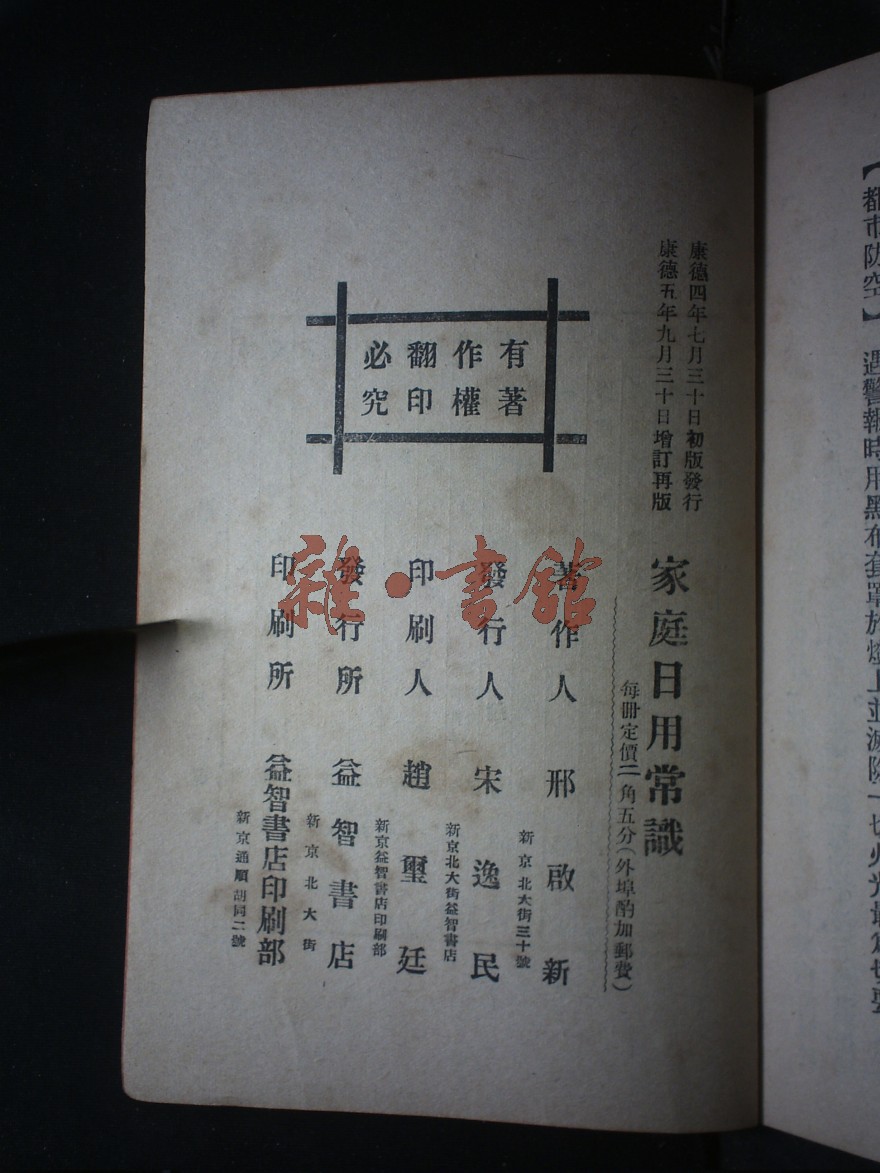 【都市防空】 遇警報時用黑布套罩於燈上並滅除一切火光最為切要
康德四年七月三十日初版發行
康德五年九月三十日增訂再版
家庭日用常識
每冊定價二角五分(外埠酌加郵費)
有著
作權
翻印
必究
著作人 邢啟新
新京北大街三十號
發行人 宋逸民
新京北大街益智書店
印刷人 趙璽廷
新京益智書店印刷部
發行所 益智書店
新京北大街
印刷所 益智書店印刷部
新京通順胡同二號
雜·書館